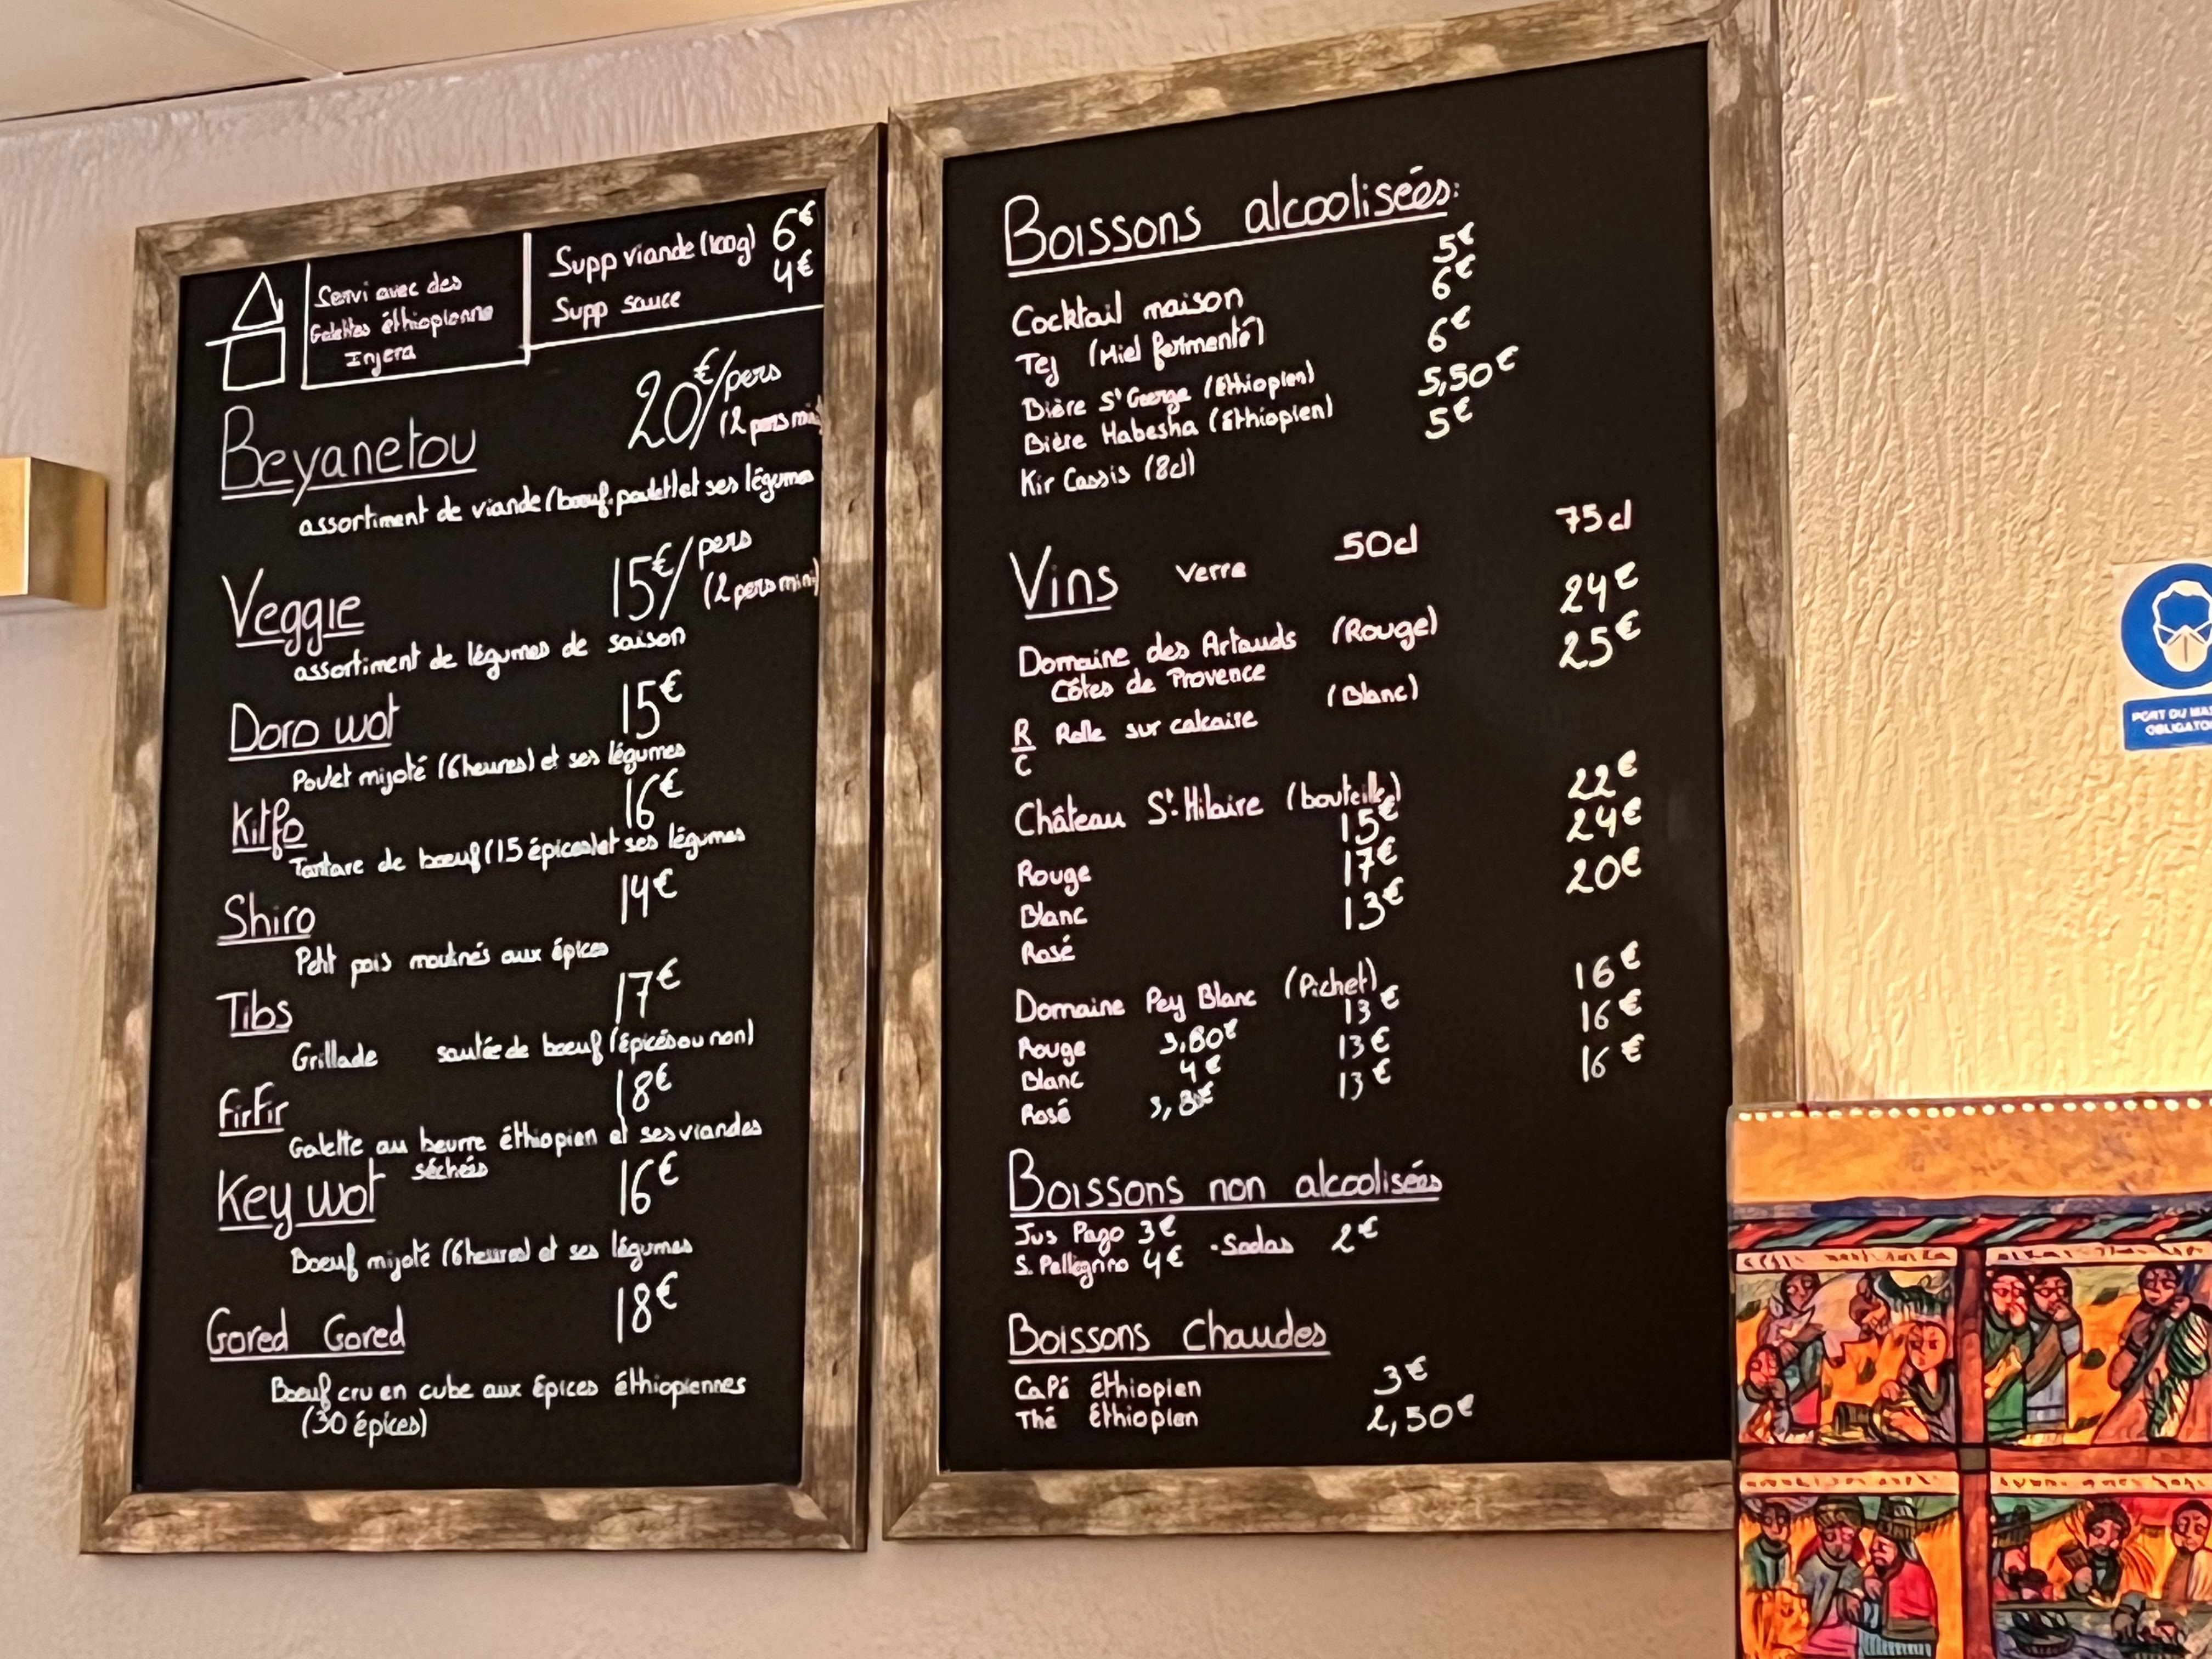 Servi avec des
Galettes éthiopienne
Injera
Supp viande (100g) 6€
Supp sauce 4€
Beyanetou 20€/pers
(2 pers min)
assortiment de viande (bœuf, poulet) et ses légumes
Veggie 15€/pers
(2 pers min)
assortiment de légumes de saison
Doro wot 15€
Poulet mijoté (6heures) et ses légumes
Kitfo 16€
Tartare de bœuf (15 épices) et ses légumes
Shiro 14€
Petit pois moulinés aux épices
Tibs 17€
Grillade sautée de bœuf (épicés ou non)
FirFir 18€
Galette au beurre éthiopien et ses viandes
séchées
Key wot 16€
Boeuf mijoté (6heures) et ses légumes
Gored Gored 18€
Bœuf cru en cube aux épices éthiopiennes
(30 épices)
Boissons alcoolisées:
Cocktail maison 5€
Tej (Miel fermenté) 6€
Bière St George (Ethiopien) 6€
Bière Habesha (Ethiopien) 5,50€
Kir Cassis (8cl) 5€
Vins Verre 50cl 75cl
Domaine des Artauds (Rouge) 24€
Côtes de Provence
R/C Rolle sur calcaire (Blanc) 25€
Château St. Hilaire (bouteille)
Rouge 15€ 22€
Blanc 17€ 24€
Rosé 13€ 20€
Domaine Pey Blanc (Pichet)
Rouge 3,80€ 13€ 16€
Blanc 4€ 13€ 16€
Rosé 3,80€ 13€ 16€
Boissons non alcoolisées
Jus Pago 3€ · Sodas 2€
S. Pellegrino 4€
Boissons Chaudes
Café éthiopien 3€
Thé éthiopien 2,50€
PORT DU MA
OBLIGATO